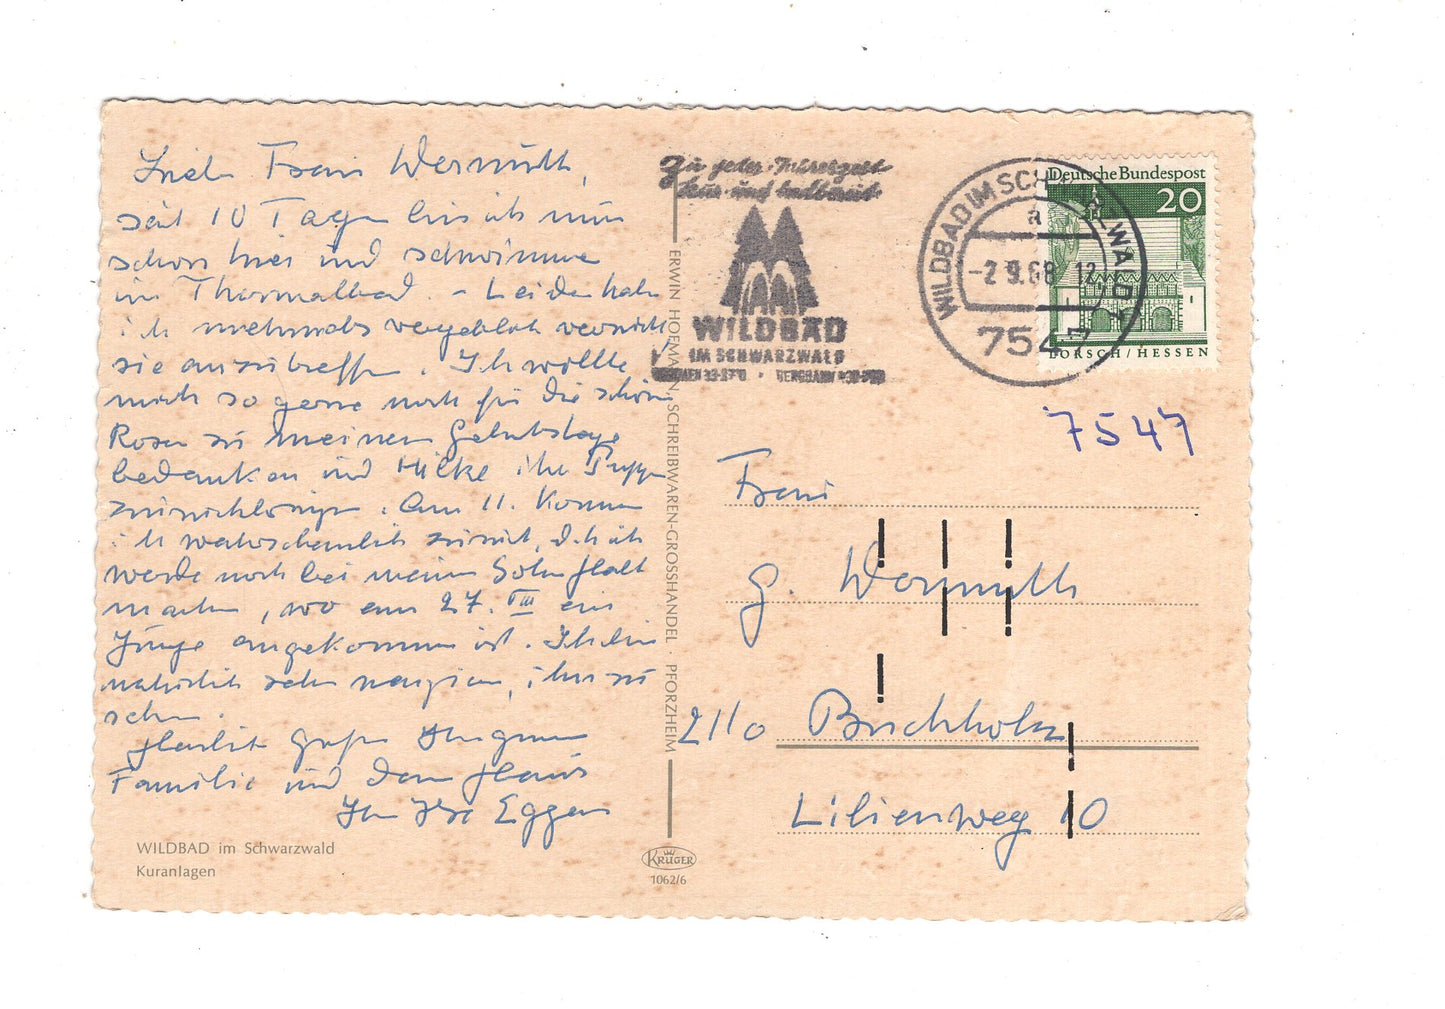 Liebe Frau Wermuth,
seit 10 Tagen bin ich nun
schon hier und schwimme
im Thermalbad. – Leider habe
ich mehrmals vergeblich versucht,
sie anzutreffen. Ich wollte
mich so gerne noch für die schönen
Rosen zu meinem Geburtstage
bedanken und Hilke ihre Puppe
zurückbringen. Am 11. komme
ich wahrscheinlich zurück, d.h. ich
werde noch bei meinem Sohn Halt
machen, wo am 27. VIII ein
Junge angekommen ist. Ich bin
natürlich sehr neugierig, ihn zu
sehen.
Herzlich grüße
Familie und dem Haus
Ihre Ilse Eggers
WILDBAD im Schwarzwald
Kuranlagen
ERWIN HOFMANN, SCHREIBWAREN-GROSSHANDEL · PFORZHEIM
KRÜGER
1062/6
Zu jeder Jahreszeit
Kur und
WILDBAD
IM SCHWARZWALD
BERGBAHN
WILDBAD IM SCHWARZWALD
a
-2.9.68 12
7547
Deutsche Bundespost
20
LORSCH/HESSEN
7547
Frau
G. Wermuth
2110 Buchholz
Lilienweg 10